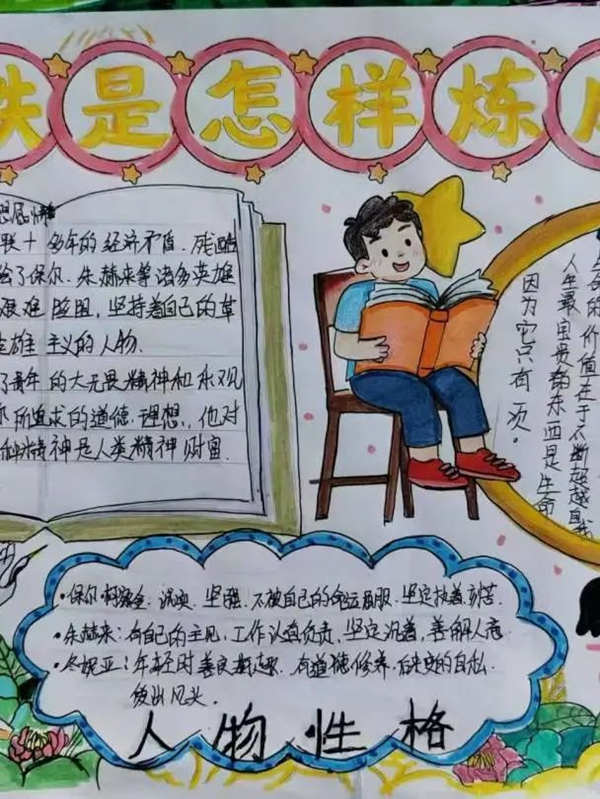 铁是怎样炼
联十多年的经济矛盾
绘了保尔.朱赫来等诸多英雄
艰难险阻，坚持着自己的革
英雄主义的人物.
了青年的大无畏精神和乐观
所追求的道德.理想.，他对
种精神是人类精神财富.
价值在于不断超越自我
人生最宝贵的东西是生命
因为它只有一次。
·保尔 坚强.不被自己的命运 服.坚定执着.刻苦.
·朱赫来：有自己的主见，工作认真负责，坚定沉着，善解人意
·冬妮亚：年轻时善良 ，有道德修养，后来变的自私
爱出风头.
人物性格